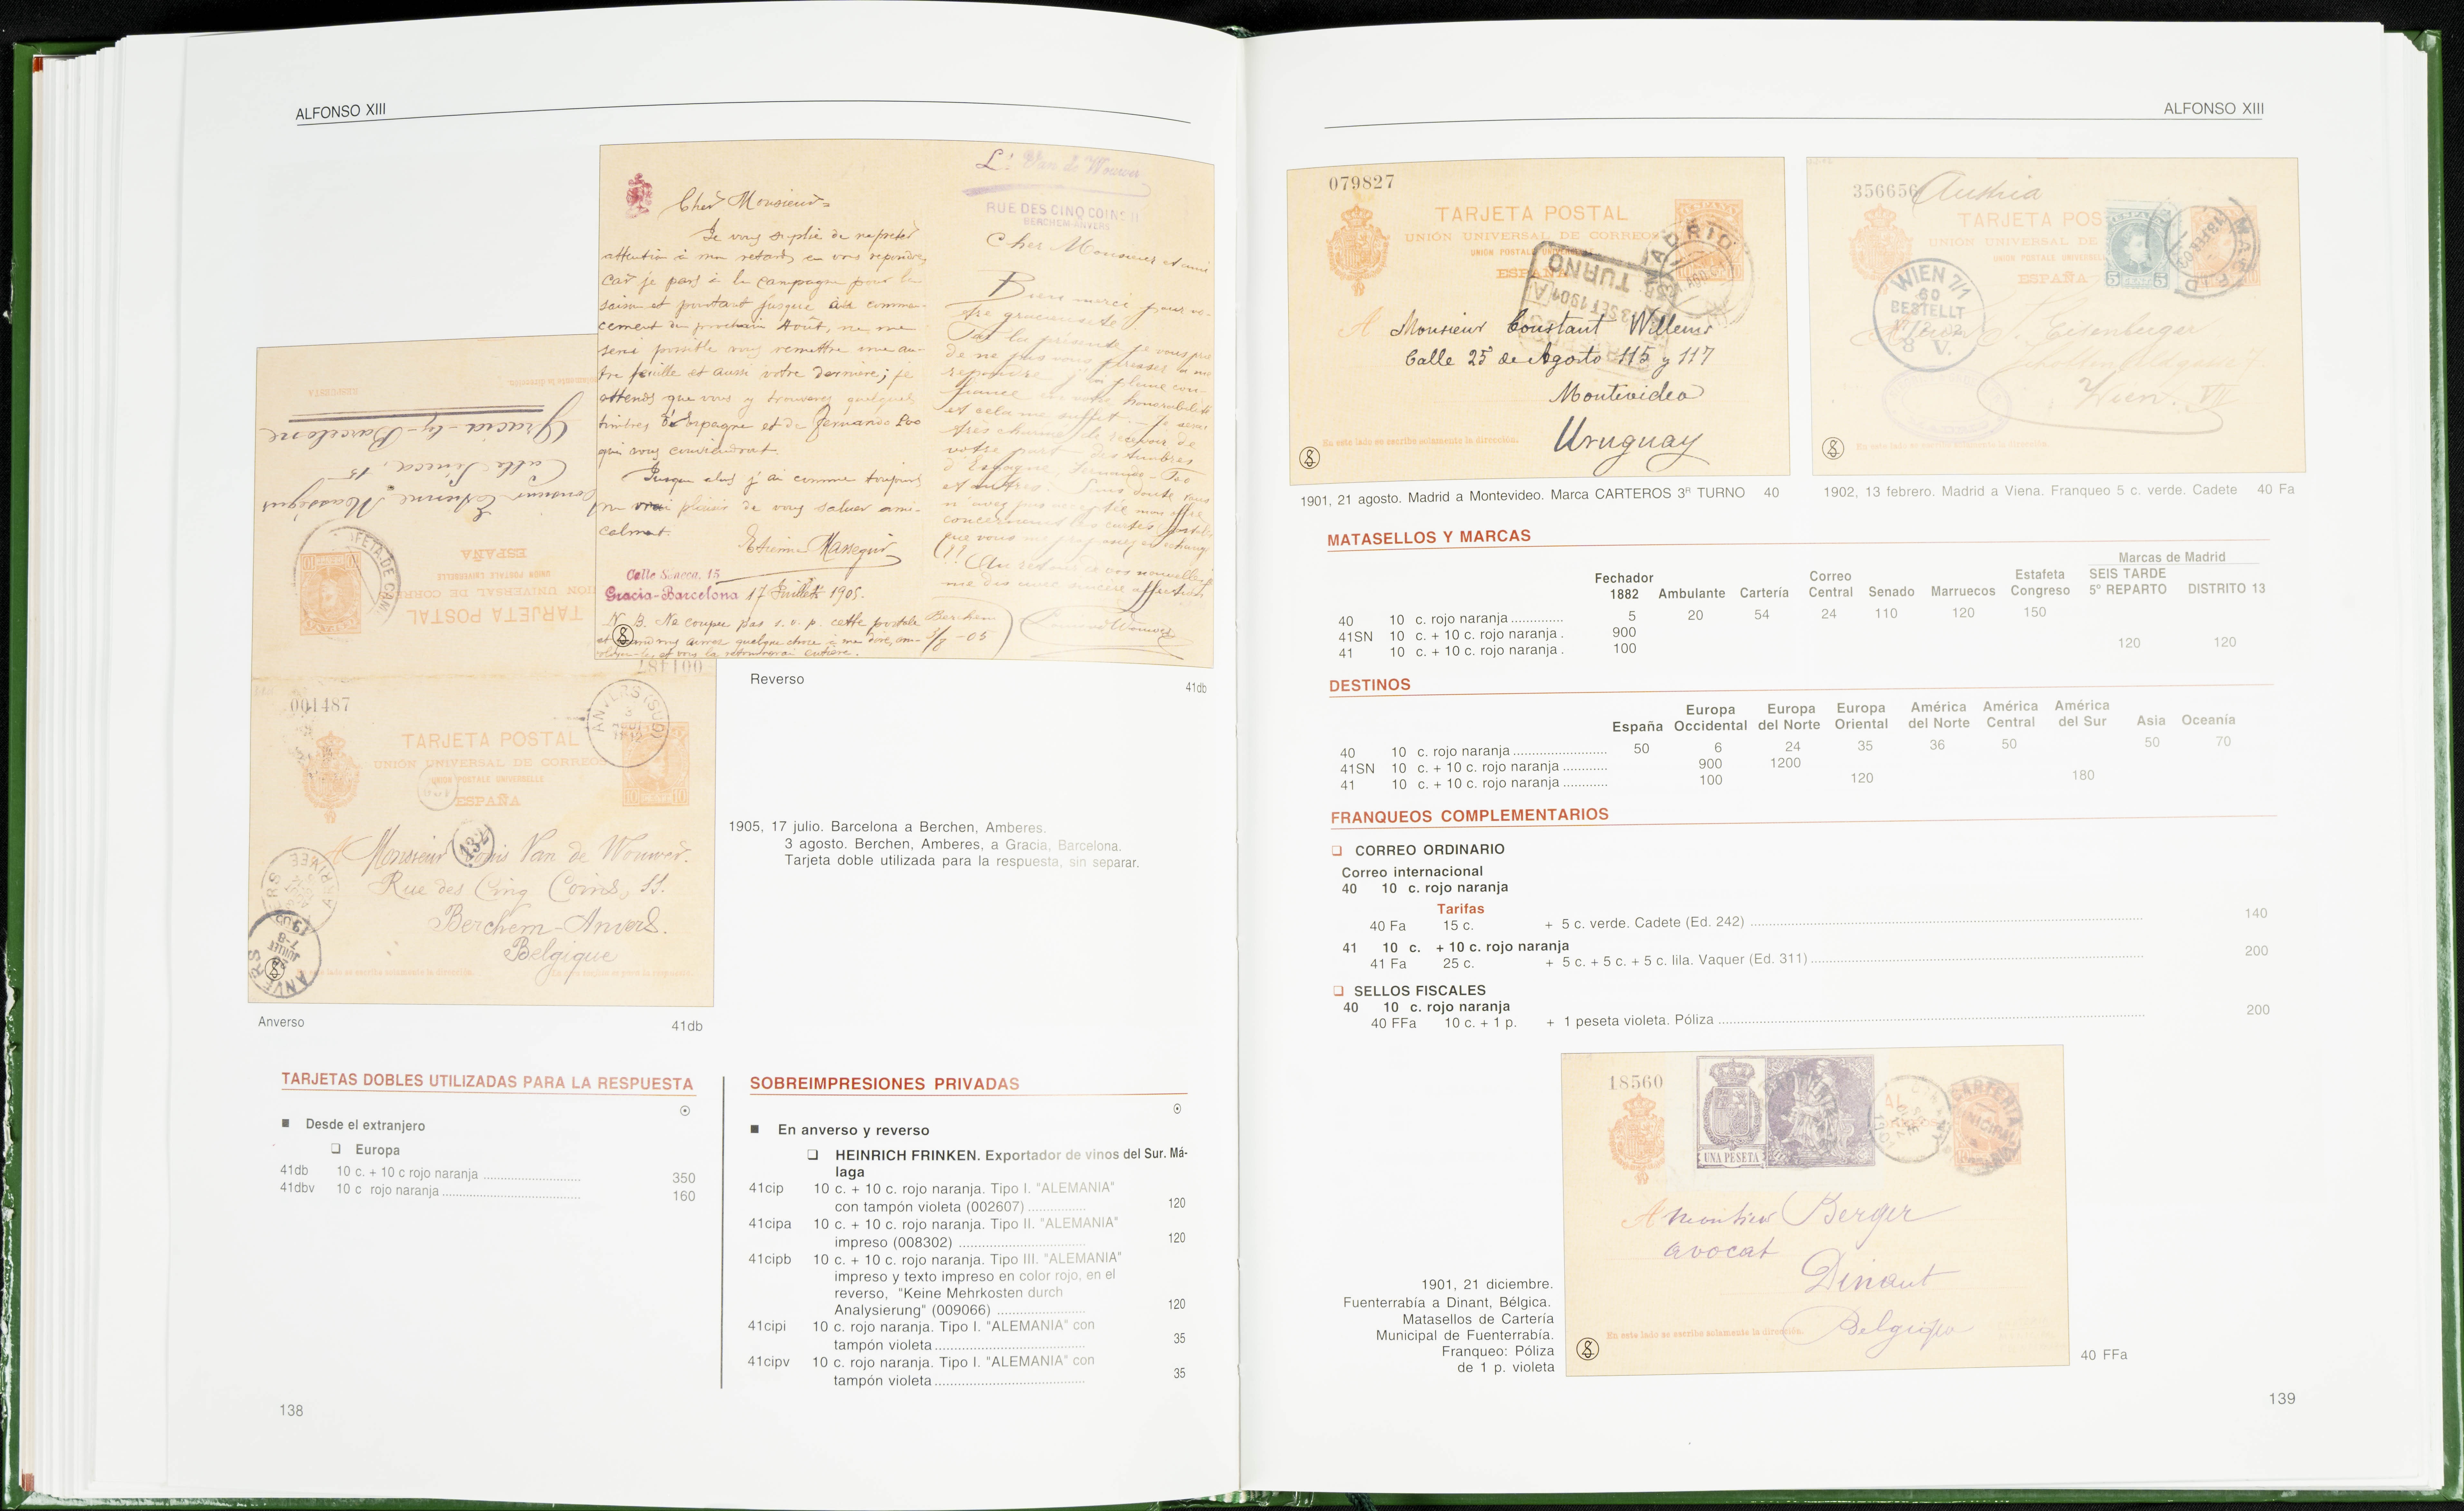 ALFONSO XIII
Cher Monsieur
Je vous suplie de ne preter
attention à mon retard en vous repondre,
car je pars à la campagne pour la
saison et pourtant jusque au comme-
cement du prochain Août, ne me
sera possible vous remettre une au-
tre feuille et aussi votre derniere; je
attends que vous y trouveres quelques
timbres d'Espagne et de Fernando Poo
qui vous conviendront.
Jusque alors j'ai comme toujours
un vrai plaisir de vous saluer ami-
calmet.
Calle Séneca, 15
Gracia-Barcelona 17 Juillet 1905.
N. B. Ne coupez pas s. v. p. cette postale
RUE DES CINQ COINS 11
BERCHEM-ANVERS
Cher Monsieur et ami
Bien merci pour vo-
tre gracieuseté.
Berchem
3/8 - 05
Gracia-by-Barcelone
Calle Séneca, 15
ESPAÑA
UNION POSTALE UNIVERSELLE
UNIÓN UNIVERSAL DE CORREOS
TARJETA POSTAL
001487
001487
ANVERS (SUD)
TARJETA POSTAL
UNIÓN UNIVERSAL DE CORREOS
UNION POSTALE UNIVERSELLE
ESPAÑA
A Monsieur Louis Van de Wouwer.
132
Rue des Cinq Coins, 11.
Berchem-Anvers.
Belgique
Reverso
41db
1905, 17 julio. Barcelona a Berchen, Amberes.
3 agosto. Berchen, Amberes, a Gracia, Barcelona.
Tarjeta doble utilizada para la respuesta, sin separar.
Anverso
41db
TARJETAS DOBLES UTILIZADAS PARA LA RESPUESTA
■ Desde el extranjero
❑ Europa
41db 10 c. + 10 c rojo naranja ........................ 350
41dbv 10 c rojo naranja ........................ 160
SOBREIMPRESIONES PRIVADAS
■ En anverso y reverso
❑ HEINRICH FRINKEN. Exportador de vinos del Sur. Má-
laga
41cip 10 c. + 10 c. rojo naranja. Tipo I. "ALEMANIA"
con tampón violeta (002607) ............... 120
41cipa 10 c. + 10 c. rojo naranja. Tipo II. "ALEMANIA"
impreso (008302) ................................. 120
41cipb 10 c. + 10 c. rojo naranja. Tipo III. "ALEMANIA"
impreso y texto impreso en color rojo, en el
reverso, "Keine Mehrkosten durch
Analysierung" (009066) ....................... 120
41cipi 10 c. rojo naranja. Tipo I. "ALEMANIA" con
tampón violeta ....................................... 35
41cipv 10 c. rojo naranja. Tipo I. "ALEMANIA" con
tampón violeta ....................................... 35
138
ALFONSO XIII
079827
TARJETA POSTAL
UNIÓN UNIVERSAL DE CORREOS
UNION POSTALE UNIVERSELLE
ESPAÑA
MADRID
TURNO
3 SET 1901
A Monsieur Constant Willems
Calle 25 de Agosto 115 y 117
Montevideo
Uruguay
En este lado se escribe solamente la dirección.
1901, 21 agosto. Madrid a Montevideo. Marca CARTEROS 3ᴿ TURNO 40
356656
Austria
TARJETA POS
UNIÓN UNIVERSAL DE
UNION POSTALE UNIVERSELLE
ESPAÑA
WIEN 7/1
BESTELLT
8 V.
Wien. VII
En este lado se escribe solamente la dirección.
1902, 13 febrero. Madrid a Viena. Franqueo 5 c. verde. Cadete 40 Fa
MATASELLOS Y MARCAS
Marcas de Madrid
Fechador 1882 Ambulante Cartería Correo Central Senado Marruecos Estafeta Congreso SEIS TARDE 5º REPARTO DISTRITO 13
40 10 c. rojo naranja .............. 5 20 54 24 110 120 150
41SN 10 c. + 10 c. rojo naranja . 900
41 10 c. + 10 c. rojo naranja . 100 120 120
DESTINOS
España Europa Occidental Europa del Norte Europa Oriental América del Norte América Central América del Sur Asia Oceanía
40 10 c. rojo naranja ........................ 50 6 24 35 36 50 50 70
41SN 10 c. + 10 c. rojo naranja ............ 900 1200
41 10 c. + 10 c. rojo naranja ............ 100 120 180
FRANQUEOS COMPLEMENTARIOS
❑ CORREO ORDINARIO
Correo internacional
40 10 c. rojo naranja
Tarifas
40 Fa 15 c. + 5 c. verde. Cadete (Ed. 242) ........................ 140
41 10 c. + 10 c. rojo naranja
41 Fa 25 c. + 5 c. + 5 c. + 5 c. lila. Vaquer (Ed. 311) ........................ 200
❑ SELLOS FISCALES
40 10 c. rojo naranja
40 FFa 10 c. + 1 p. + 1 peseta violeta. Póliza ........................ 200
18560
UNA PESETA
CARTERIA
A Monsieur Berger
avocat
Dinant
Belgique
En este lado se escribe solamente la dirección.
1901, 21 diciembre.
Fuenterrabía a Dinant, Bélgica.
Matasellos de Cartería
Municipal de Fuenterrabía.
Franqueo: Póliza
de 1 p. violeta
40 FFa
139